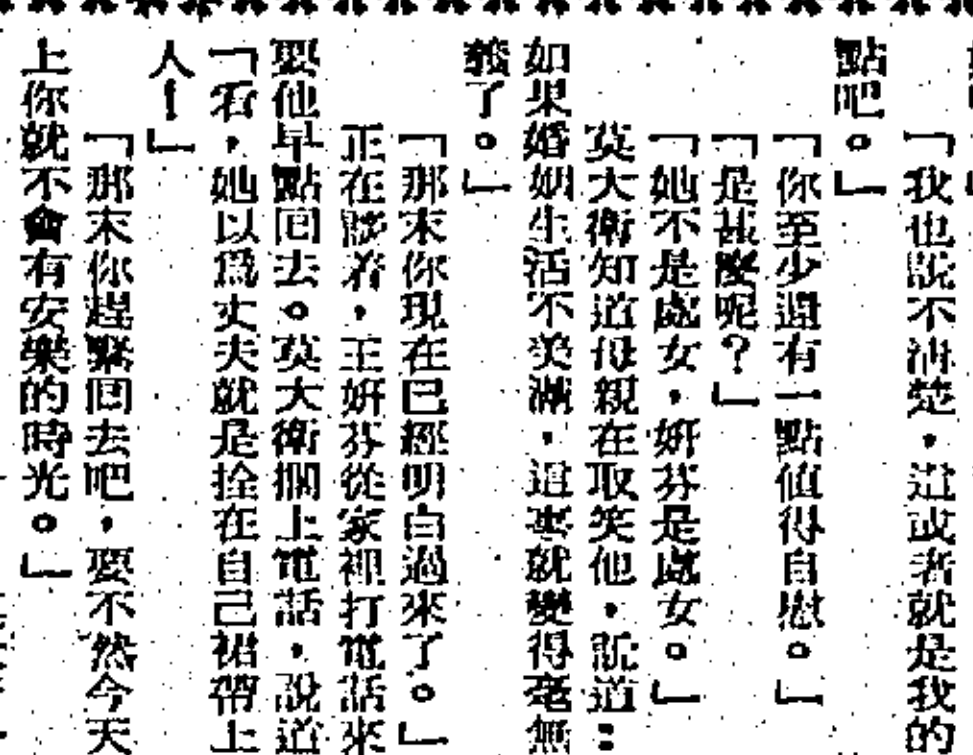 「我也說不淸楚，這或者就是我的
點吧。」
「你至少還有一點值得自慰。」
「是甚麼呢？」
「她不是處女，妍芬是處女。」
莫大衛知道母親在取笑他，說道：
如果婚姻生活不美滿，這事就變得毫無
義了。」
「那末你現在已經明白過來了。」
正在談着，王妍芬從家裡打電話來
要他早點回去。莫大衛擱上電話，說道
「看，她以爲丈夫就是拴在自己裙帶上
人！」
「那末你趕緊回去吧，要不然今天
上你就不會有安樂的時光。」